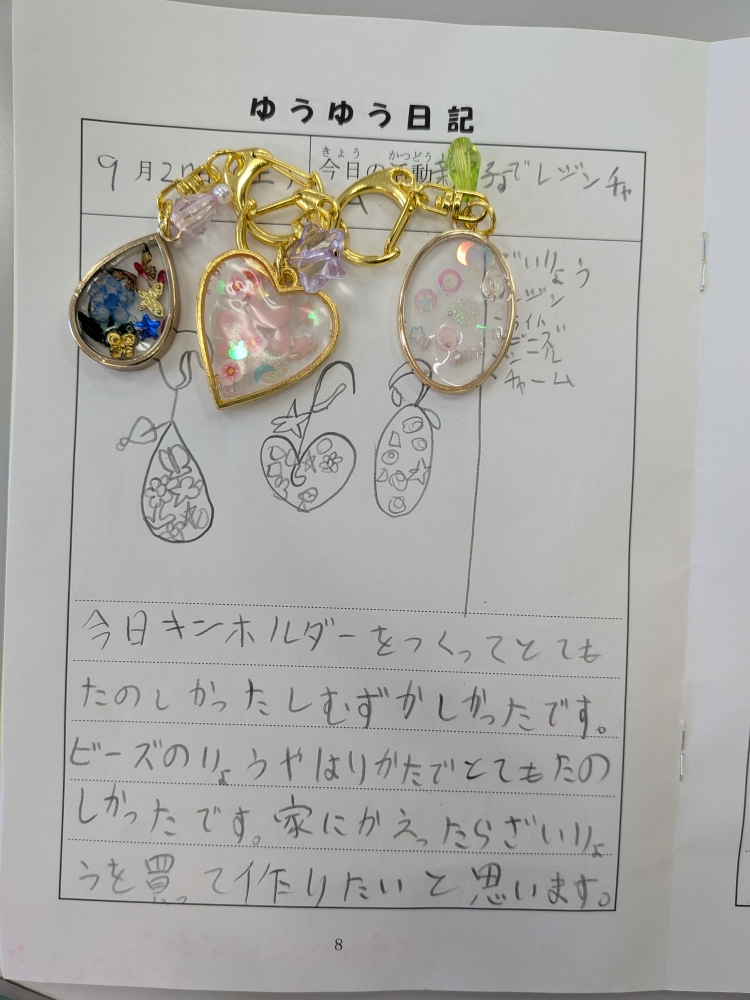 ゆうゆう日記
9月
きょう かつどう
今日の活動 でレジンチャ
ざいりょう
レジン
ライト
ビーズ
チャーム
今日キンホルダーをつくってとても
たのしかったしむずかしかったです。
ビーズのりょうやはりかたでとてもたの
しかったです。家にかえったらざいりょ
うを買って作りたいと思います。
8